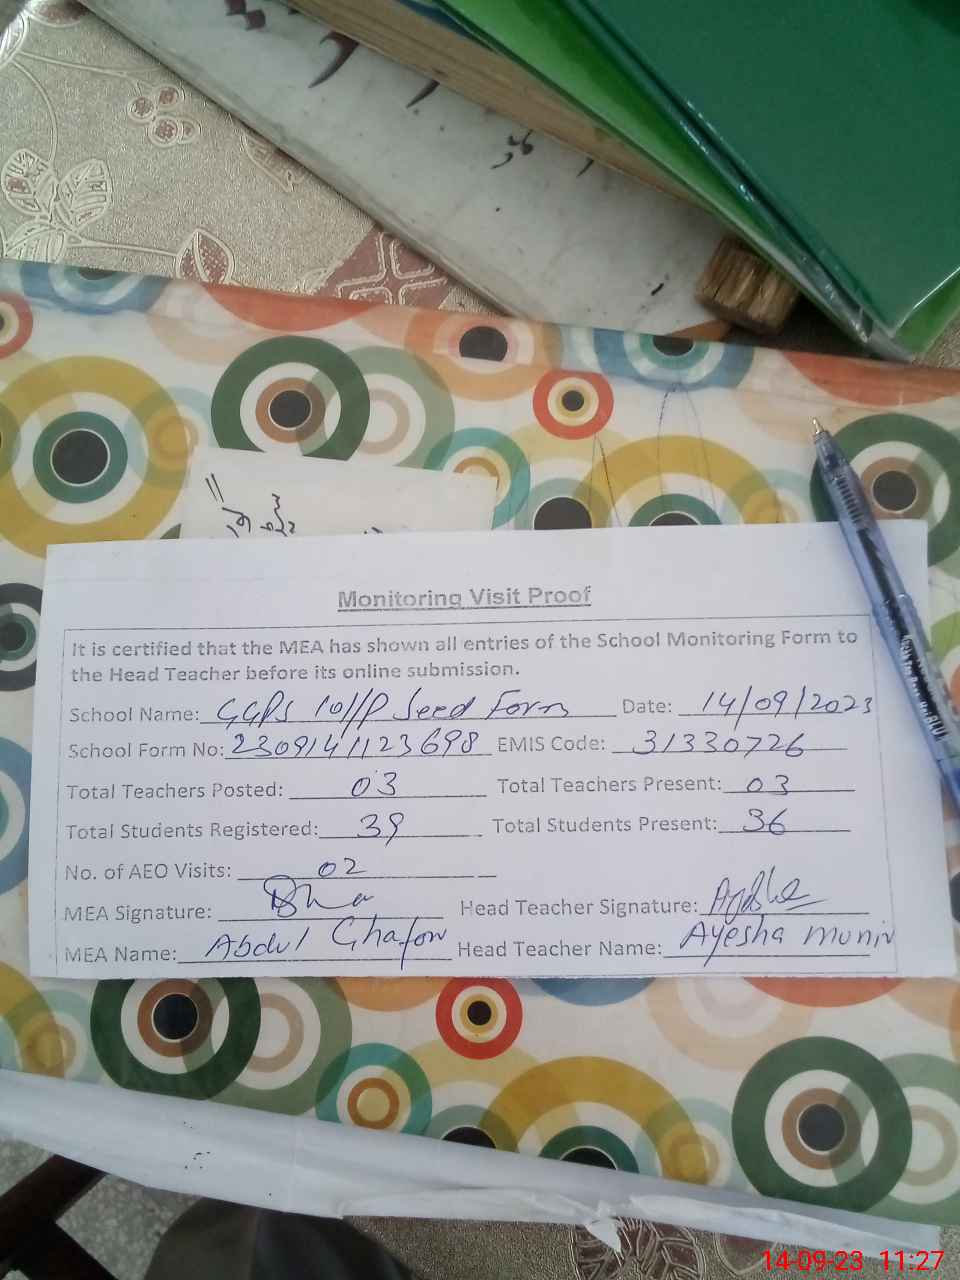 Monitoring Visit Proof
It is certified that the MEA has shown all entries of the School Monitoring Form to
the Head Teacher before its online submission.
School Name: GGPS 101/P Seed Form Date: 14/09/2023
School Form No: 2309141123698 EMIS Code: 31330726
Total Teachers Posted: 03 Total Teachers Present: 03
Total Students Registered: 39 Total Students Present: 36
No. of AEO Visits: 02
MEA Signature: Head Teacher Signature:
MEA Name: Abdul Ghafour Head Teacher Name: Ayesha munir
14-09-23 11:27